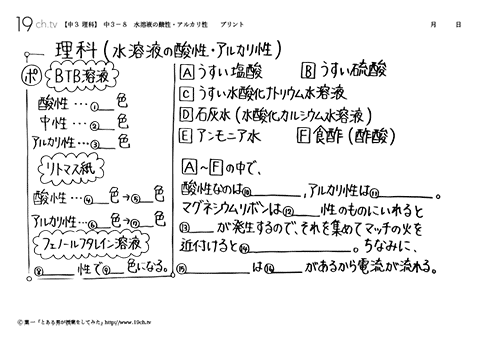 19ch.tv 【中3 理科】 中3-8 水溶液の酸性・アルカリ性 プリント 月 日
理科 (水溶液の酸性・アルカリ性)
ポ
BTB溶液
酸性…①__色
中性…②__色
アルカリ性…③__色
リトマス紙
酸性…④__色→⑤__色
アルカリ性…⑥__色→⑦__色
フェノールフタレイン溶液
⑧____性で⑨__色になる。
A うすい塩酸 B うすい硫酸
C うすい水酸化ナトリウム水溶液
D 石灰水(水酸化カルシウム水溶液)
E アンモニア水 F 食酢(酢酸)
A~Fの中で、
酸性なのは⑩______,アルカリ性は⑪______。
マグネシウムリボンは⑫____性のものにいれると
⑬____が発生するので、それを集めてマッチの火を
近付けると⑭__________。ちなみに、
⑮________は⑯____があるから電流が流れる。
© 葉一「とある男が授業をしてみた」http://www.19ch.tv